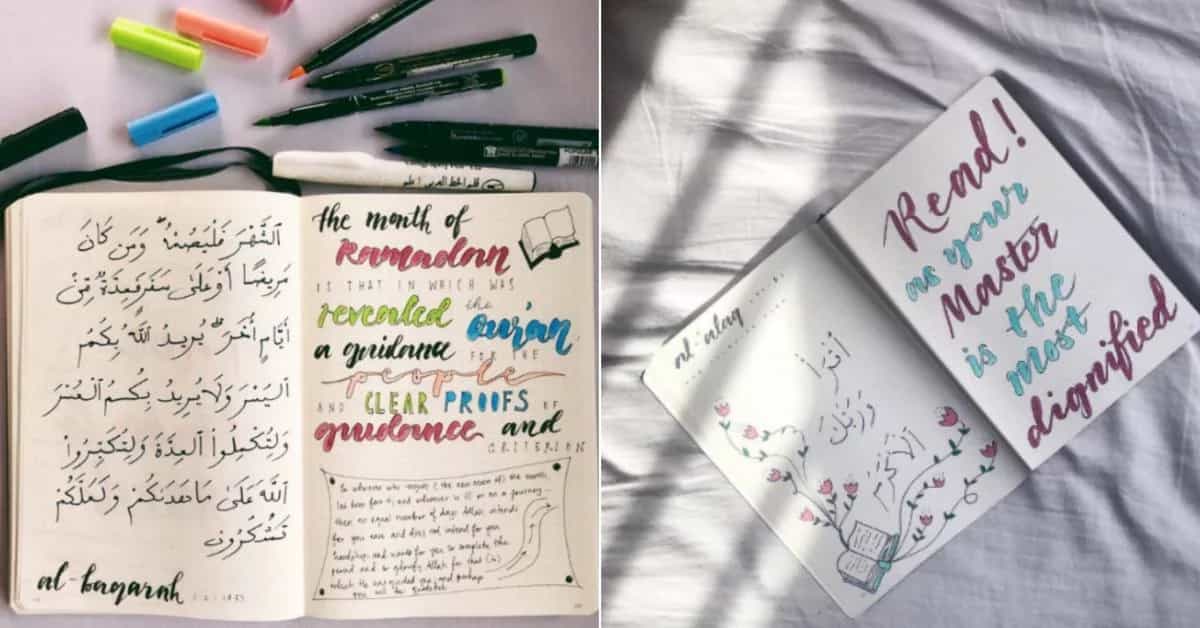 ٱلشَّهْرَ فَلْيَصُمْهُ ۖ وَمَن كَانَ
مَرِيضًا أَوْ عَلَىٰ سَفَرٍ فَعِدَّةٌ مِّنْ
أَيَّامٍ أُخَرَ ۗ يُرِيدُ ٱللَّهُ بِكُمُ
ٱلْيُسْرَ وَلَا يُرِيدُ بِكُمُ ٱلْعُسْرَ
وَلِتُكْمِلُوا۟ ٱلْعِدَّةَ وَلِتُكَبِّرُوا۟
ٱللَّهَ عَلَىٰ مَا هَدَىٰكُمْ وَلَعَلَّكُمْ
تَشْكُرُونَ
al-baqarah
قلم الخط العربي
the month of
Ramadan
IS THAT IN WHICH WAS
revealed the Qur'an,
a guidance FOR THE
people
AND CLEAR PROOFS OF
guidance and
CRITERION
So whoever who sights (the new moon of) the month,
let him fast it; and whoever is ill or on a journey...
then an equal number of days. Allah intends
for you ease and does not intend for you
hardship and wants for you to complete the
period and to glorify Allah for that (to)
which He has guided you; and perhaps
you will be grateful.
al-alaq
ٱقْرَأْ
وَرَبُّكَ
ٱلْأَكْرَمُ
Read!
as your
Master
is the
most
dignified